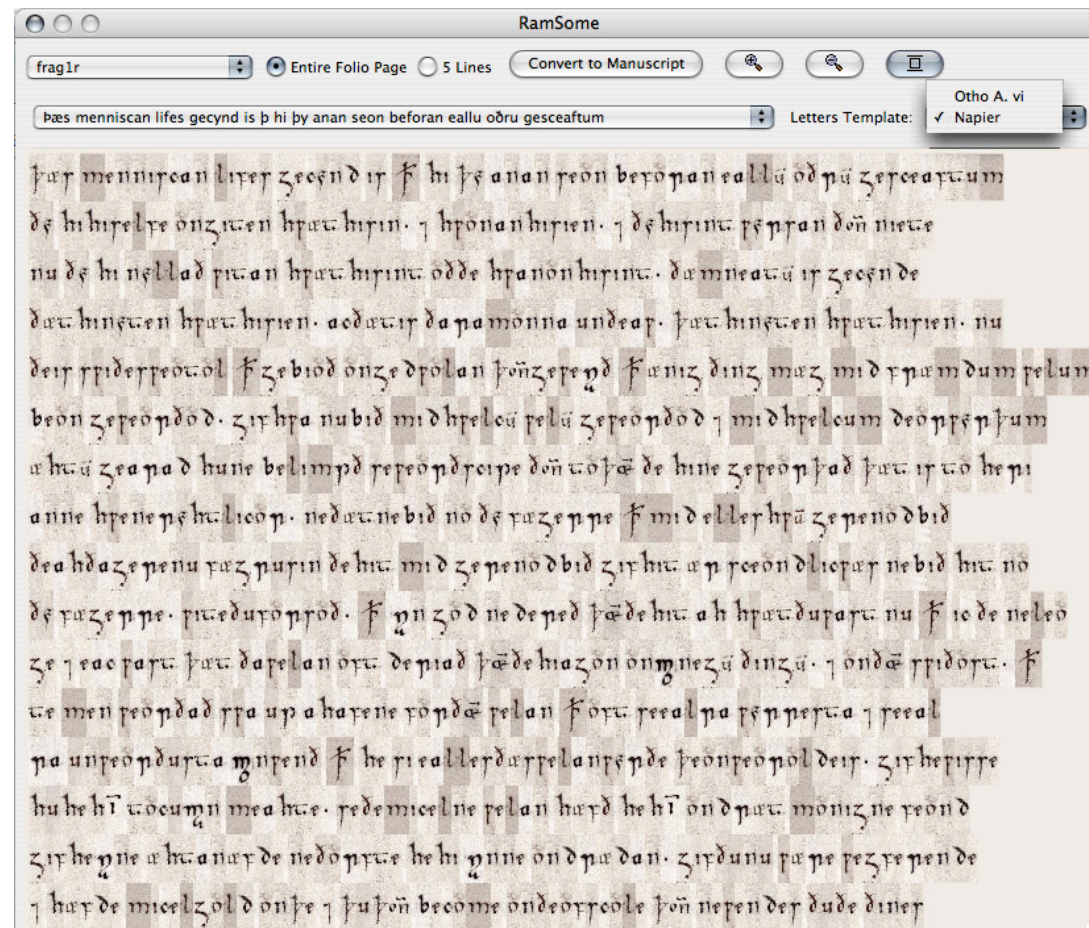 RamSome
frag1r
Entire Folio Page
5 Lines
Convert to Manuscript
Þæs menniscan lifes gecynd is þ hi þy anan seon beforan eallu oðru gesceaftum
Letters Template:
Otho A. vi
✓ Napier
þæs menniscan lifes gecynd is ꝥ hi þy anan seon beforan eallū oðrū gesceaftum
ðy hi hiselfe ongiten hwæt hisin. ⁊ hwonan hisien. ⁊ ðy hisint wyrsan ðon̄ niete
nu ðy hi nyllað witan hwæt hisint oððe hwanon hisint. ðæm neatū is gecynde
ðæt hi nyten hwæt hisien. ac ðæt is ðara monna unðeaw. þæt hi nyten hwæt hisien. nu
ðe is swiðe sweotol ꝥ ge bioð on gedwolan þon̄ ge wenað ꝥ ænig ðing mæg mid fræmdum welum
beon geweorðod. gif hwa nu bið mid hwelcū welū geweorðod ⁊ mid hwelcum deorwyrþum
æhtū gearad hu ne belimpð se weorðscipe ðon̄ to þæ̅ ðe hine geweorþað þæt is to heri
anne hwene ryhtlicor. ne ðæt ne bið no ðy fægerre ꝥ mid elles hwā gerenod bið
ðeah ða gerenu fægru sin ðe hit mid gerenod bið gif hit ær sceondlic wæs ne bið hit no
ðy fægerre. wite ðu for soð. ꝥ nan god ne dereð þæ̅ ðe hit ah hwæt ðu wast nu ꝥ ic ðe ne leo
ge ⁊ eac wast þæt ða welan oft deriað þæ̅ ðe hi agon on manegū ðingū. ⁊ on ðæ̅ swiðost. ꝥ
te men weorðað swa up ahafene for ðæ̅ welan ꝥ oft se ealra wyrresta ⁊ se eal
ra unweorðusta man wenð ꝥ he si ealles ðæs welan wyrðe þe on weorolde is. gif he wisse
hu he hī to cuman meahte. se ðe micelne welan hæfð he hī ondræt monigne feond
gif he nane æhta næfde ne ðorfte he hi nanne ondrædan. gif ðu nu wære wegferende
⁊ hæfde micel gold on þe ⁊ þu þon̄ become on ðeofscole þon̄ ne wendes ðu ðe ðines